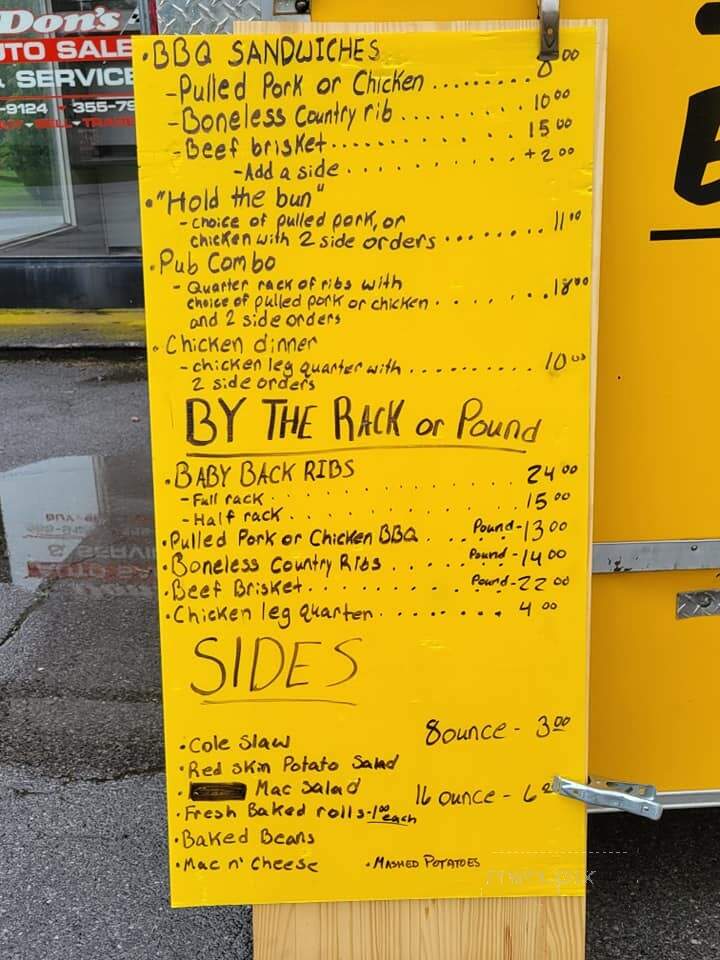 Don's
UTO SALE
& SERVICE
-9124 · 355-79
· SELL · TRADE
• BBQ SANDWICHES
- Pulled Pork or Chicken ......... 8 00
- Boneless Country rib ........ 10 00
- Beef brisket ........... 15 00
- Add a side ............ + 2.00
• "Hold the bun"
- choice of pulled pork, or
chicken with 2 side orders ....... 11 00
• Pub Combo
- Quarter rack of ribs with
choice of pulled pork or chicken ....... 18 00
and 2 side orders
• Chicken dinner
- chicken leg quarter with .......... 10 00
2 side orders
BY THE RACK or Pound
• BABY BACK RIBS
- Full rack ............ 24 00
- Half rack ............ 15 00
• Pulled Pork or Chicken BBQ .. Pound - 13 00
• Boneless Country Ribs .... Pound - 14 00
• Beef Brisket ........ Pound - 22 00
• Chicken leg quarter ........ 4 00
SIDES
8 ounce - 3 00
• Cole Slaw
• Red Skin Potato Salad
• Mac Salad
16 ounce - 6
• Fresh Baked rolls - 1 00 each
• Baked Beans
• Mac n' Cheese • MASHED POTATOES